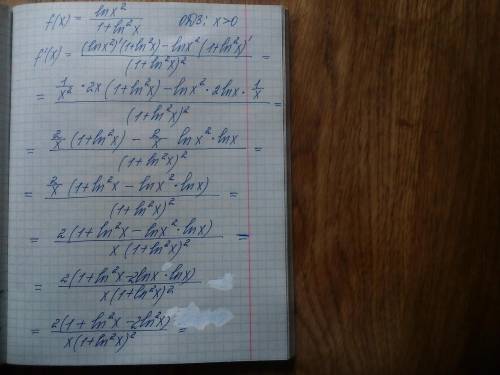 f(x) = lnx² / (1+ln²x)   ОДЗ: x>0
f'(x) = ((lnx²)'(1+ln²x) - lnx²(1+ln²x)') / (1+ln²x)² =
= (1/x² · 2x (1+ln²x) - lnx² · 2lnx · 1/x) / (1+ln²x)² =
= (2/x (1+ln²x) - 2/x lnx² · lnx) / (1+ln²x)² =
= (2/x (1+ln²x - lnx² · lnx)) / (1+ln²x)² =
= 2(1+ln²x - lnx² · lnx) / (x(1+ln²x)²) =
= 2(1+ln²x - 2lnx · lnx) / (x(1+ln²x)²)
= 2(1+ln²x - 2ln²x) / (x(1+ln²x)²) =